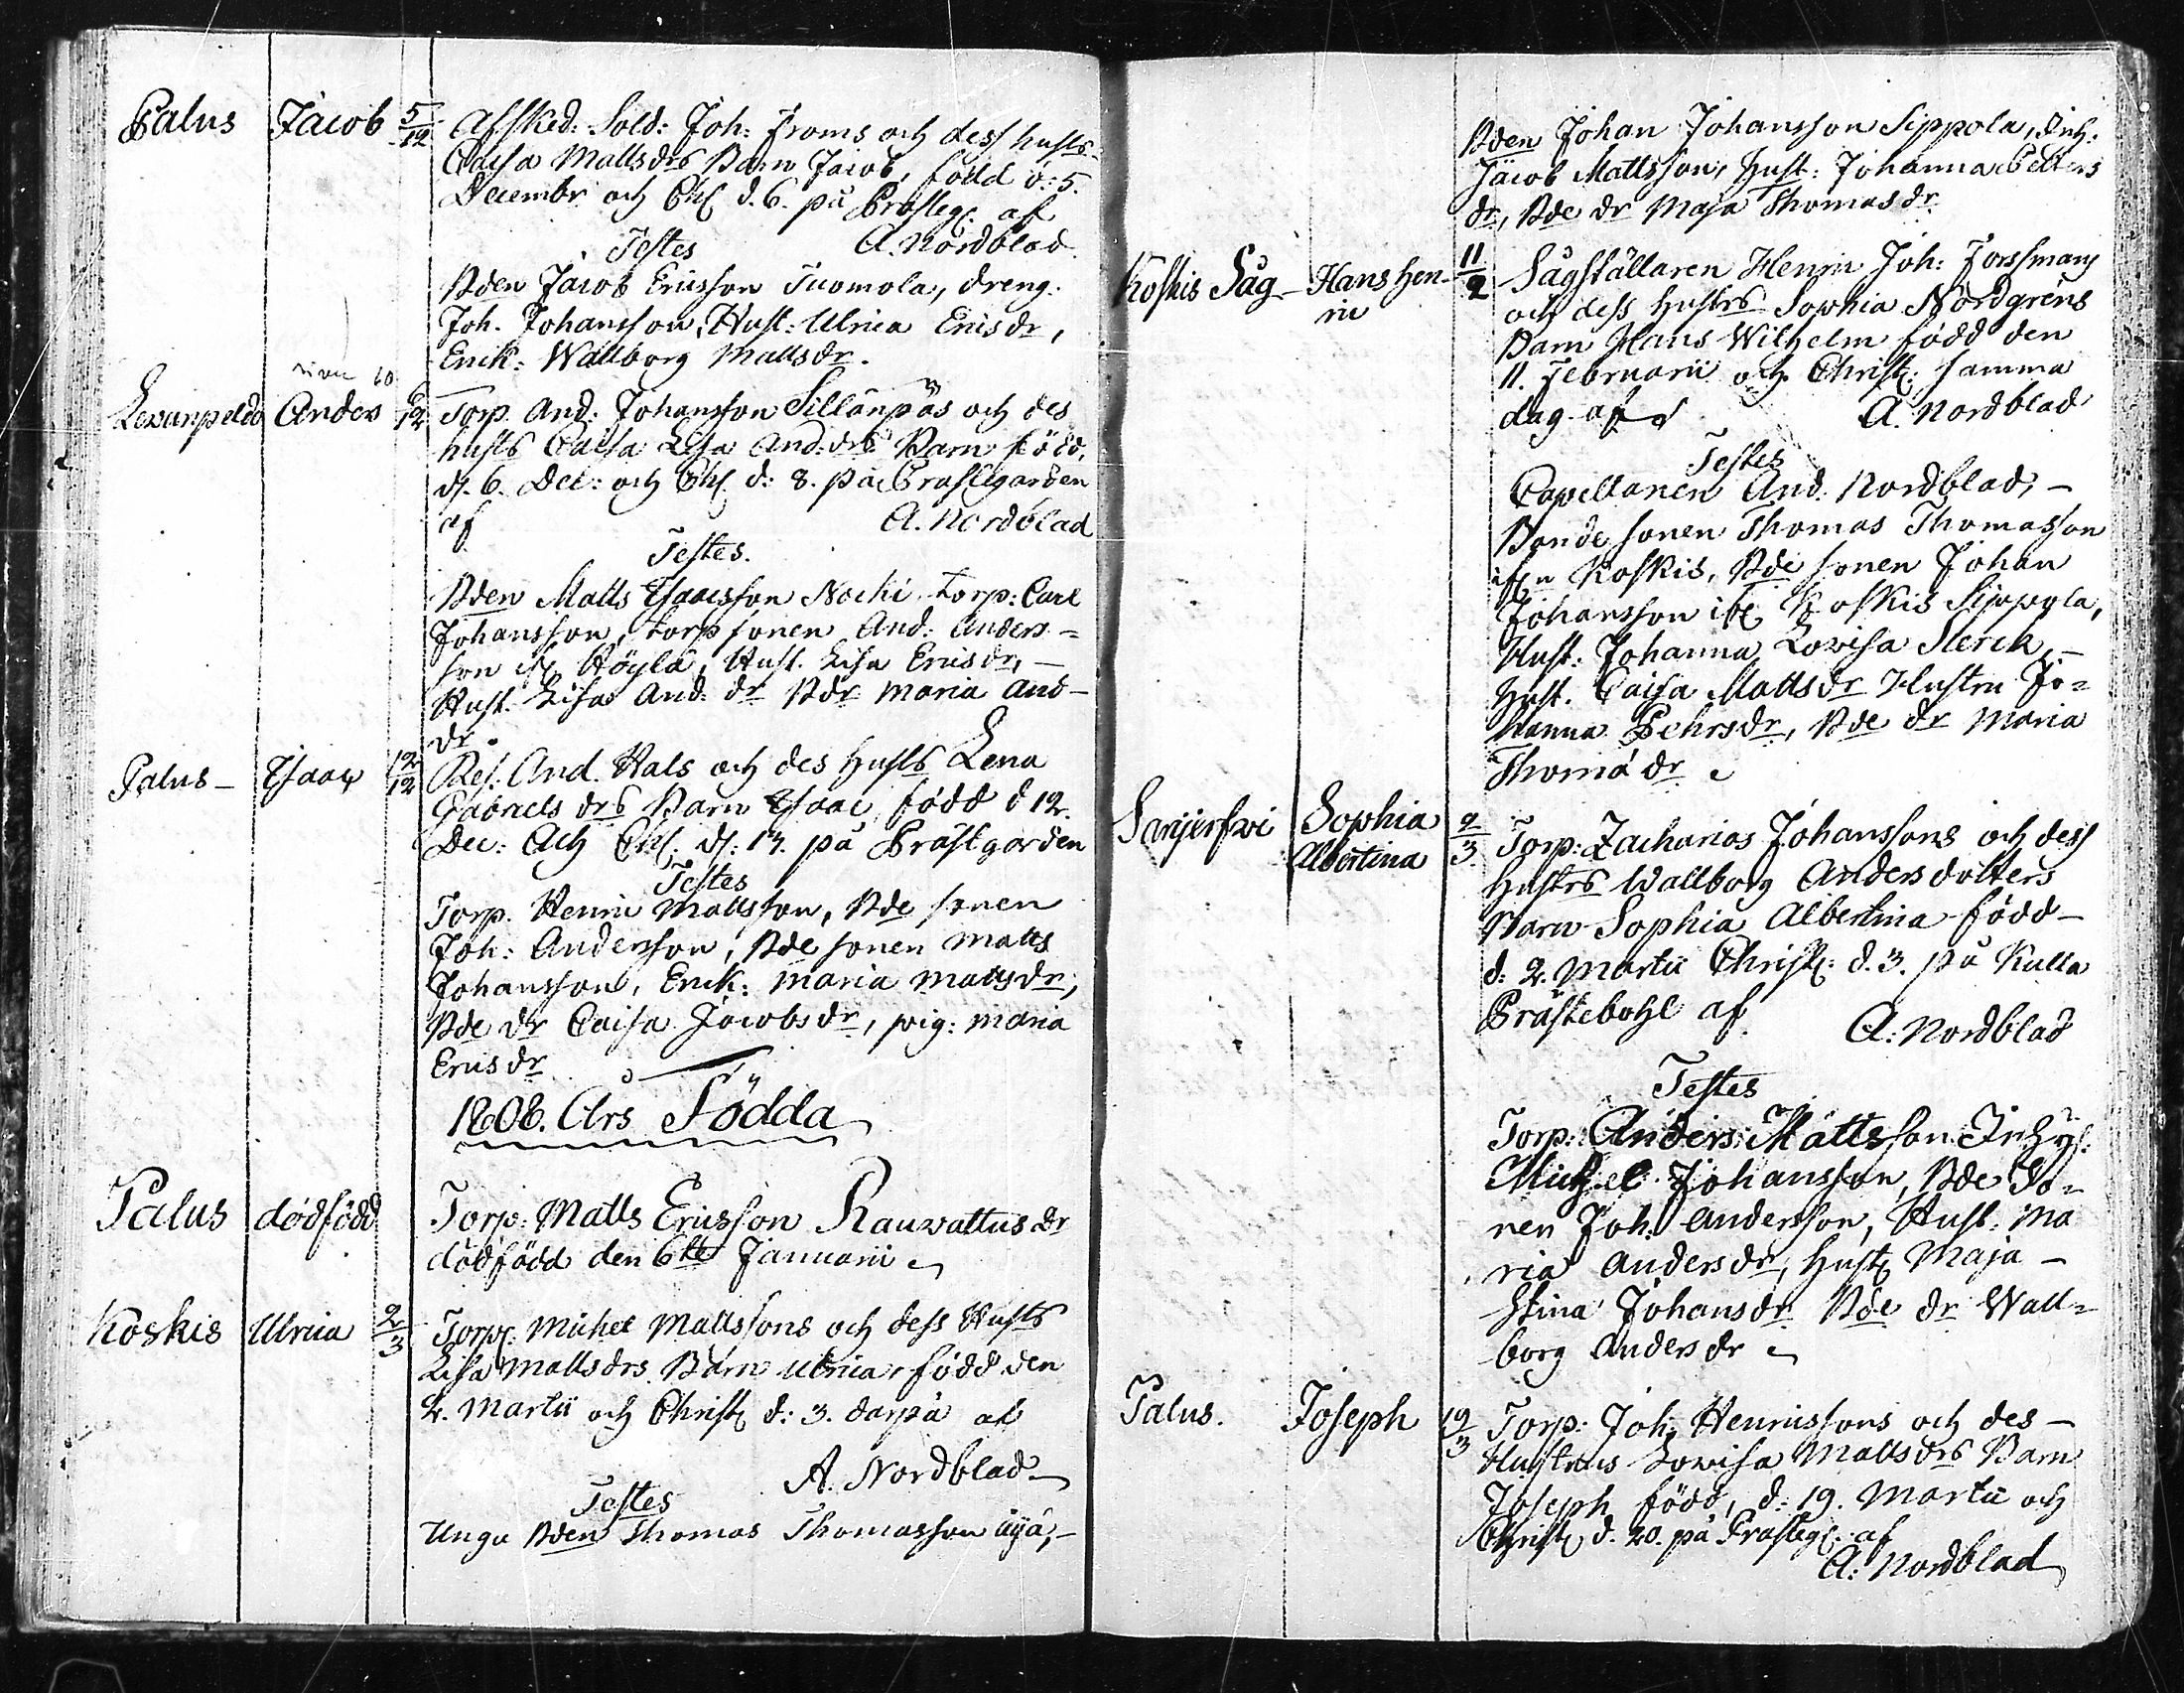 Palus Jacob 5/12 Afsked: Sold: Joh: Froms och dess hustrs
Caisa Mattsdrs Barn Jacob, född d: 5.
Decembr och Chr. d. 6. på Prästeg. af
Testes A. Nordblad
Bden Jacob Ericsson Tuomola, dreng.
Joh. Johansson, Hust: Ulrica Ericsdr,
Enk: Wallborg Mattsdr.
Levanpeldo Anders 6/12 Torp. And: Johansson Sillanpäs och des
husts Caisa Lisa And:drs Barn född,
d. 6. Dec: och Chr. d: 8. på Prästegården
af A. Nordblad
Testes.
Bden Matts Isaacsson Nocki torp: Carl
Johansson, torp sonen And: Anders=
son Höylä, Hust. Lisa Ericsdr, –
Hust. Lisa And: dr Bdr Maria And–
dr.
Palus – Isaac 12/12 Ref. And. Hals och des husts Lena
Gabriels drs Barn Isaac född d 12.
Dec: Och Chr. d: 13. på Prästgården
Testes
Torp. Henric Mattsson, Bde sonen
Joh: Andersson, Bde sonen Matts
Johansson, Enk: Maria Mattsdr,
Bde dr Caisa Jacobsdr, pig: Maria
Ericsdr
1808. Års Födda
Palus dödfödd Torp: Matts Ericsson Rauvattus dr
dödfödd den 6te Januarii
Koskis Ulrica 2/3 Torp: Michel Mattssons och dess Husts
Lisa Mattsdrs Barn Ulrica, född den
2. Martii och Christ d: 3. darpå af
A. Nordblad
Testes
Unga Bden Thomas Thomasson äyä, –
Bden Johan Johansson Sippola, Inh:
Jacob Mattsson, Hust: Johanna Petters
dr, Bde dr Maja Thomasdr
Koskis Såg – Hans Hen-
ric 11/2 Sågställaren Henric Joh: Forssmans
och dess hustrs Sophia Nordgrens
Barn Hans Wilhelm född den
11. Februarii och Christ: samma
dag af A. Nordblad
Testes
Capellanen And. Nordblad, –
Bonde sonen Thomas Thomasson
ifrån Koskis, Bde sonen Johan
Johansson ifr. Koskis Sippola,
Hust: Johanna Lovisa Sterck, –
Hust. Caisa Mattsdr Hustru Jo=
hanna Pehrsdr, Bde dr Maria
Thoma dr
Sanjerfwi Sophia
Albertina 2/3 Torp: Zacharias Johanssons och dess
Hustrs Wallborg Andersdotters
Barn Sophia Albertina född –
d: 2. Martii Christ: d. 3. på Kulla
Prästebohl af A: Nordblad
Testes
Torp: Anders Mattsson Inhys:
Michel Johansson, Bde So=
nen Joh: Andersson, Hust: Ma
ria Andersdr, Hust Maja –
Stina Johansdr Bde dr Wall=
borg Anders dr
Palus. Joseph 19/3 Torp: Joh: Henricssons och des –
Hustrus Lovisa Mattsdrs Barn
Joseph född, d: 19. Martii och
Christ d. 20. på Prästeg. af
A: Nordblad